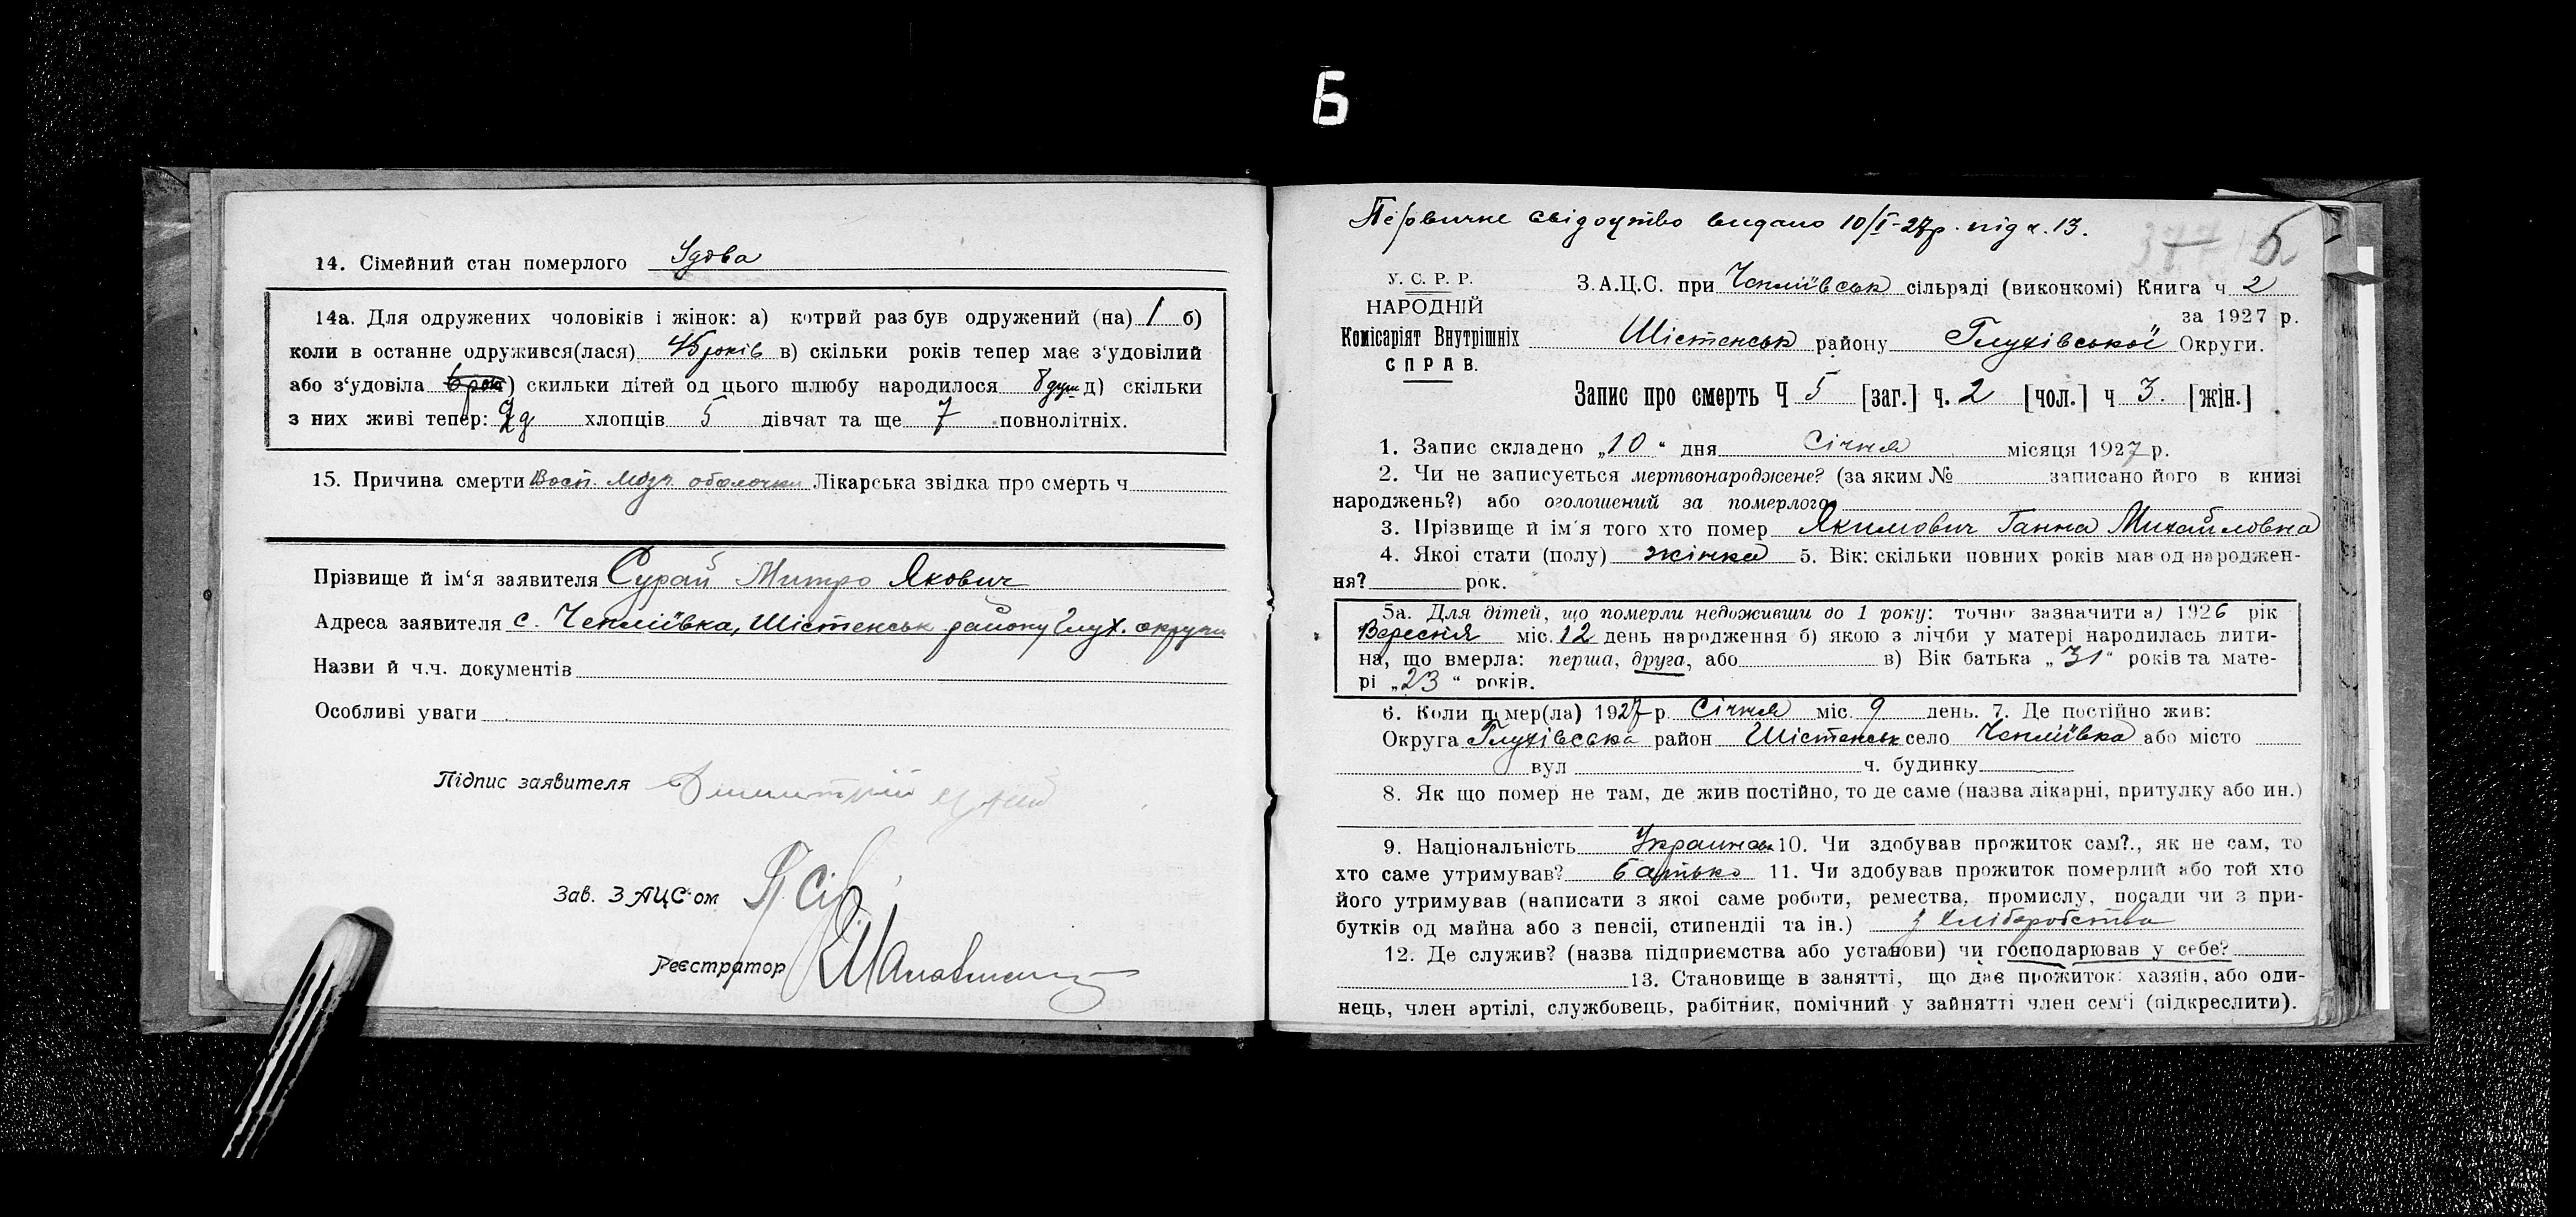 Б
14. Сімейний стан померлого Удова
14а. Для одружених чоловіків і жінок: а) котрий раз був одружений (на) 1 б)
коли в останне одружився(лася) 45 років в) скільки років тепер має з‘удовілий
або з‘удовіла ) скильки дітей од цього шлюбу народилося 8 душ д) скільки
з них живі тепер: 2 д хлопців 5 дівчат та ще 7 повнолітніх.
15. Причина смерти Восп. Мозг. оболочки Лікарська звідка про смерть ч
Прізвище й ім‘я заявителя Сурай Митро Якович
Адреса заявителя с. Чепліївка, Шістенськ району Глух. округи
Назви й ч.ч. документів
Особливі уваги
Підпис заявителя Димитрій
Зав. ЗАЦС-ом
Реєстратор
Первичне свідоцтво видано 10/I-27р. під ч. 13.
5
У. С. Р. Р.
НАРОДНІЙ
Комісаріят Внутрішніх
СПРАВ.
З.А.Ц.С. при Чепліївськ сільраді (виконкомі) Книга ч 2
за 1927 р.
Шістенськ району Глухівської Округи.
Запис про смерть Ч 5 [заг.] ч. 2 [чол.] ч 3. [жін.]
1. Запис складено „10“ дня Січня місяця 1927 р.
2. Чи не записується мертвонароджене? (за яким № записано його в книзі
народжень?) або оголошений за померлого
3. Прізвище й ім'я того хто помер Якимович Ганна Михайловна
4. Якоі стати (полу) жінка 5. Вік: скільки повних років мав од народжен-
ня? рок.
5а. Для дітей, що померли недоживши до 1 року: точно зазначити а) 1926 рік
Вересня міс. 12 день народження б) якою з лічби у матері народилась дити-
на, що вмерла: перша, друга, або в) Вік батька „31“ років та мате-
рі „23“ років.
6. Коли помер(ла) 1927 р Січня міс. 9 день. 7. Де постійно жив:
Округа Глухівська район Шістенськ село Чепліївка або місто
вул ч. будинку
8. Як що помер не там, де жив постійно, то де саме (назва лікарні, притулку або ин.)
9. Національність Украинськ 10. Чи здобував прожиток сам?., як не сам, то
хто саме утримував? батько 11. Чи здобував прожиток померлий або той хто
його утримував (написати з якоі саме роботи, ремества, промислу, посади чи з при-
бутків од майна або з пенсіі, стипендіі та ін.) з хліборобства
12. Де служив? (назва підприємства або установи) чи господарював у себе?
13. Становище в занятті, що дає прожиток: хазяін, або оди-
нець, член артілі, службовець, рабітник, помічний у зайнятті член сем‘і (підкреслити).